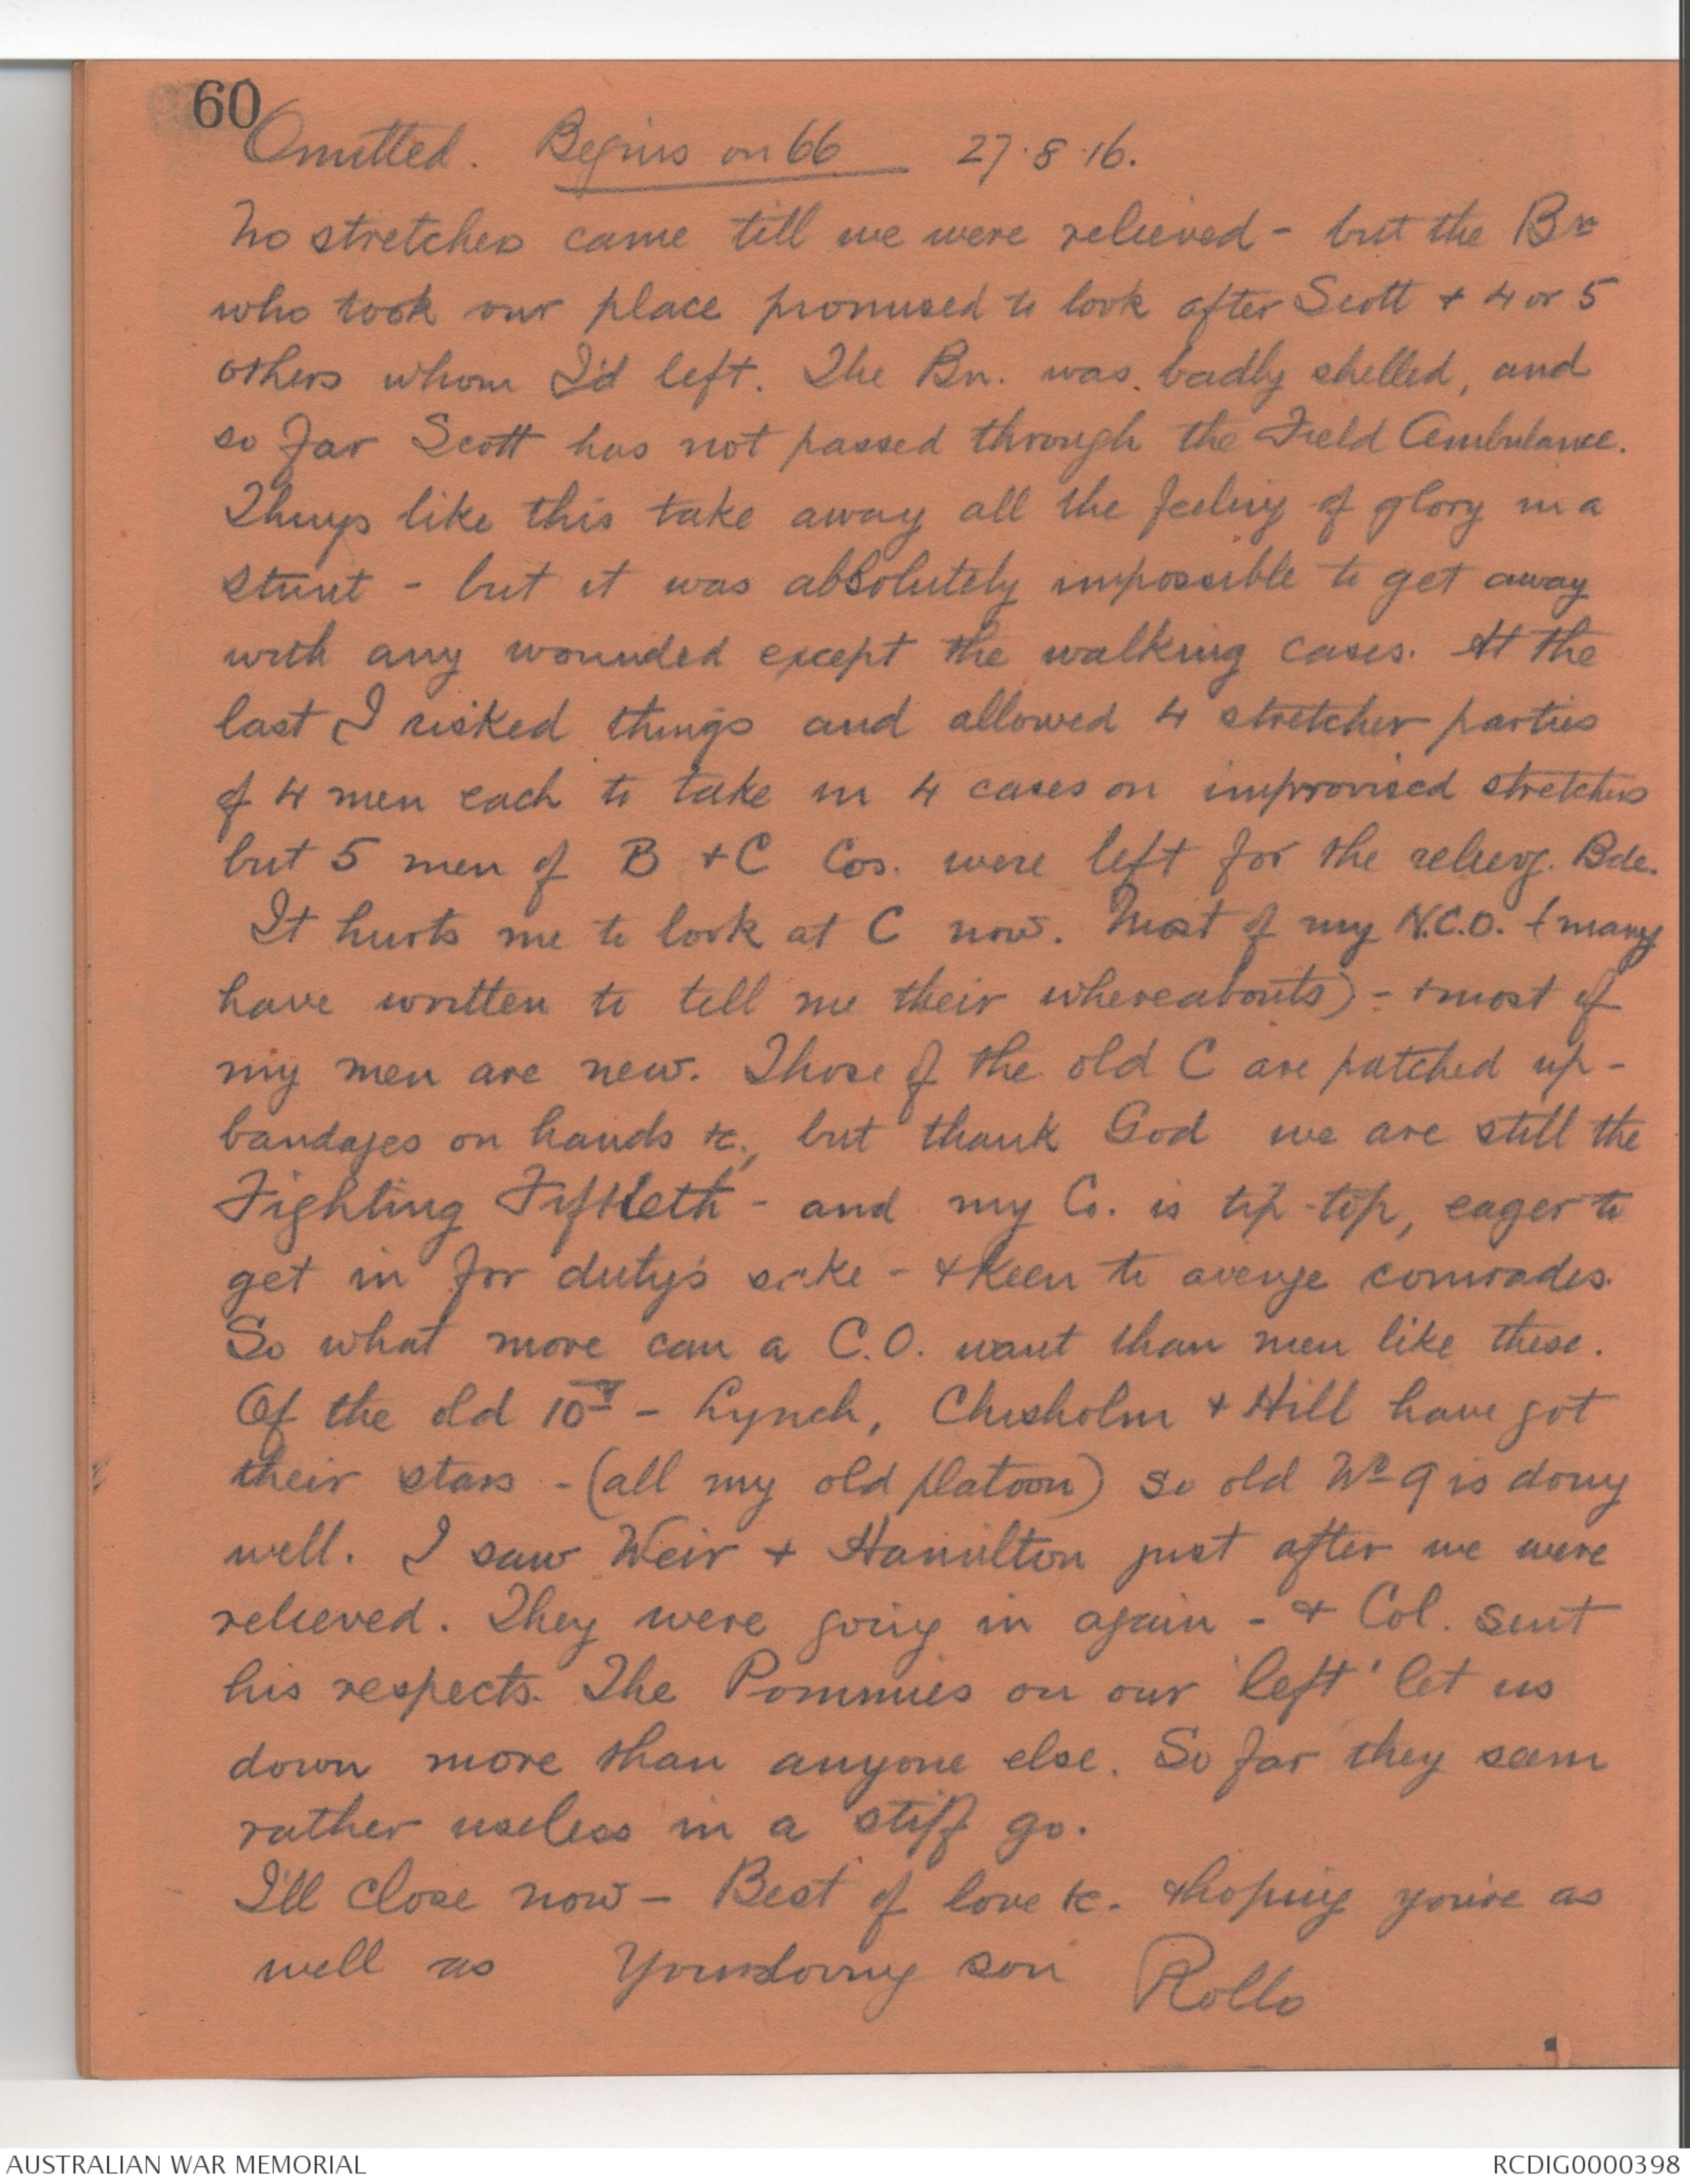 60
Omitted. Begins on 66 27.8.16.
No stretcher came till we were relieved - but the Bn
who took our place promised to look after Scott + 4 or 5
others whom I'd left. The Bn. was badly shelled, and
so far Scott has not passed through the Field Ambulance.
Things like this take away all the feeling of glory in a
stunt - but it was absolutely impossible to get away
with any wounded except the walking cases. At the
last I risked things and allowed 4 stretcher parties
of 4 men each to take in 4 cases on improvised stretchers
but 5 men of B + C Cos. were left for the relievg. Bde.
It hurts me to look at C now. Most of my N.C.O. (many
have written to tell me their whereabouts) - + most of
my men are new. Those of the old C are patched up -
bandages on hands &c., but thank God we are still the
Fighting Fiftieth - and my Co. is tip-top, eager to
get in for duty's sake - + keen to avenge comrades.
So what more can a C.O. want than men like these.
Of the old 10th - Lynch, Chisholm + Hill have got
their stars - (all my old platoon) so old No 9 is doing
well. I saw Weir + Hamilton just after we were
relieved. They were going in again - + Col. sent
his respects. The Pommies on our 'left' let us
down more than anyone else. So far they seem
rather useless in a stiff go.
I'll close now - Best of love &c. + hoping you're as
well as Your loving son Rollo
AUSTRALIAN WAR MEMORIAL RCDIG0000398